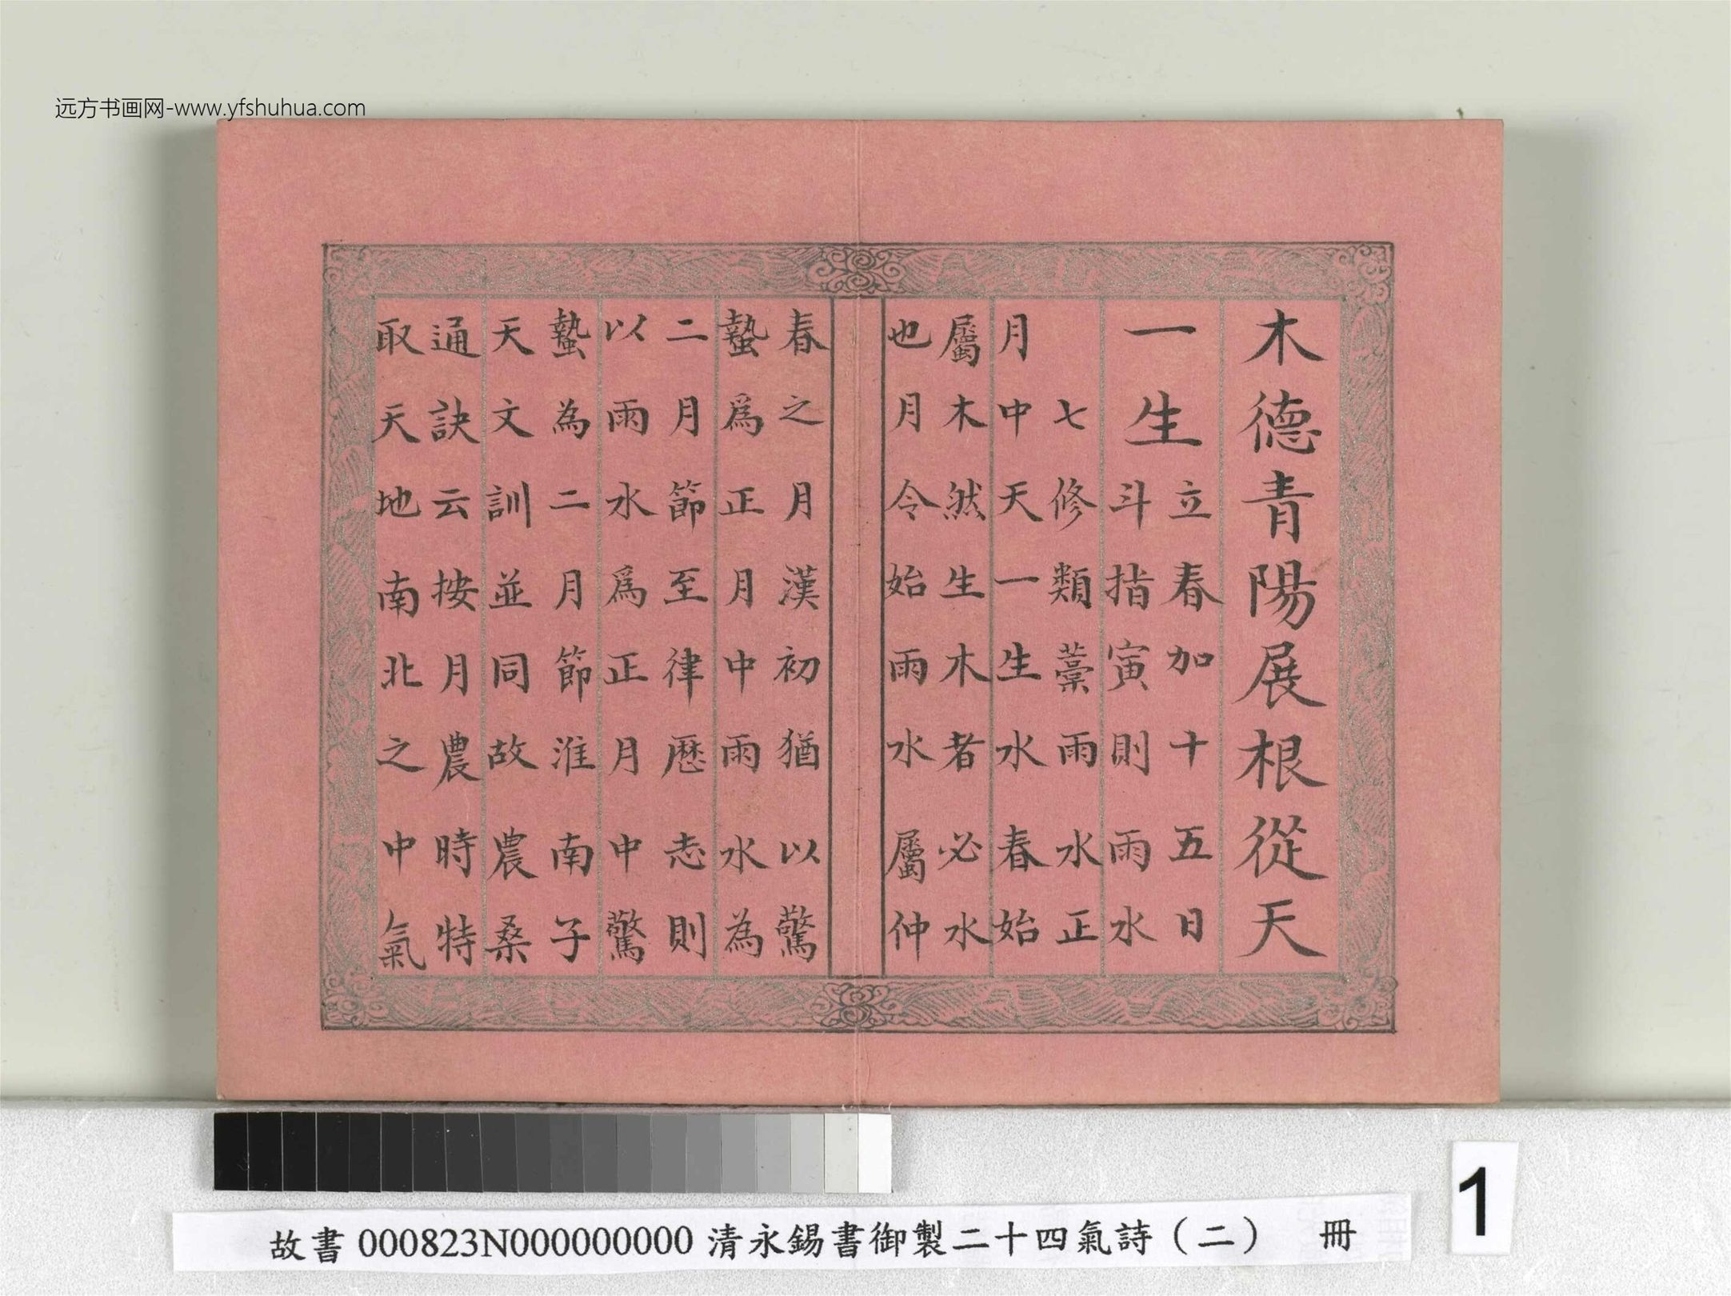 远方书画网-www.yfshuhua.com
木德青陽展根從天
一生
立春加十五日
斗指寅則雨水
七修類藁雨水正
月中天一生水春始
屬木然生木者必水
也月令始雨水屬仲
春之月漢初猶以驚
蟄爲正月中雨水為
二月節至律歷志則
以雨水爲正月中驚
蟄為二月節淮南子
天文訓並同故農桑
通訣云按月農時特
取天地南北之中氣
故書000823N000000000 清永錫書御製二十四氣詩（二） 冊
1